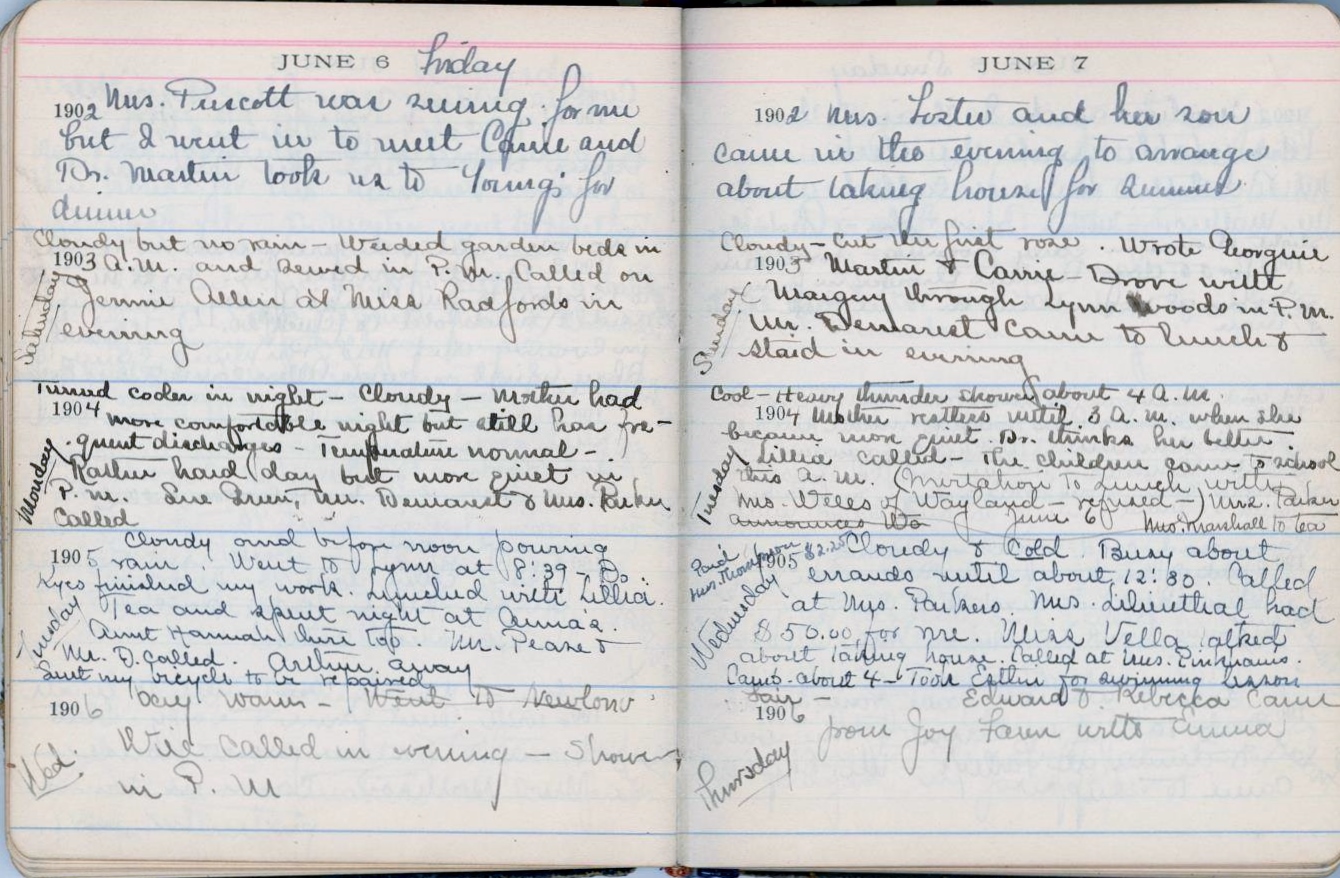 JUNE 6 Friday
1902 Mrs. Prescott was sewing for me
but I went in to meet Carrie and
Dr. Martin took us to Young's for
dinner
Cloudy but no rain - Weeded garden beds in
1903 A.M. and sewed in P.M. Called on
Saturday
Jennie Allen at Miss Radfords in
evening
Turned cooler in night - Cloudy - Mother had
1904 more comfortable night but still has fre-
quent discharges - Temperature normal -
Monday
Rather hard day but more quiet in
P.M. Sue Mr. Demarest & Mrs. Parker
Called
Cloudy and before noon pouring
1905 rain. Went to Lynn at 8:39 Dr.
finished my work. Lunched with Lillia.
Tuesday
Tea and spent night at Anna's.
Aunt Hannah there too. Mr. Pease &
Mr. D. called. Arthur away
Sent my bicycle to be repaired
1906 Very warm - Went to
Wed.
called in evening - Shower
in P.M
JUNE 7
1902 Mrs. Foster and her son
came in the evening to arrange
about taking house for summer
Cloudy - Cut the first rose. Wrote Georgie
1903 Martin & Carrie Drove with
Sunday
through Lynn Woods in P.M.
Mr. Demarest came to lunch &
staid in evening
Cool - Heavy thunder shower about 4 A.M.
1904 Mother restless until 3 A.M. when she
became more quiet. Dr. thinks her better
Tuesday
Lillie called - The children came to school
this A.M. (Invitation to lunch with
Mrs. Wells of Wayland - refused -) Mrs. Parker
announces
June 6
Mrs. Marshall to tea
Paid
Mrs. Thompson $2.25
1905 Cloudy & Cold Busy about
errands until about 12:30. Called
Wednesday
at Mrs. Parkers. Mrs. Lilienthal had
$50.00 for me. Miss Vella talked
about taking house. Called at Mrs. Pinkhams.
Came about 4 - Took Esther for swimming lesson
Fair - Edward & Rebecca Came
1906 from Joy Farm with Emma
Thursday